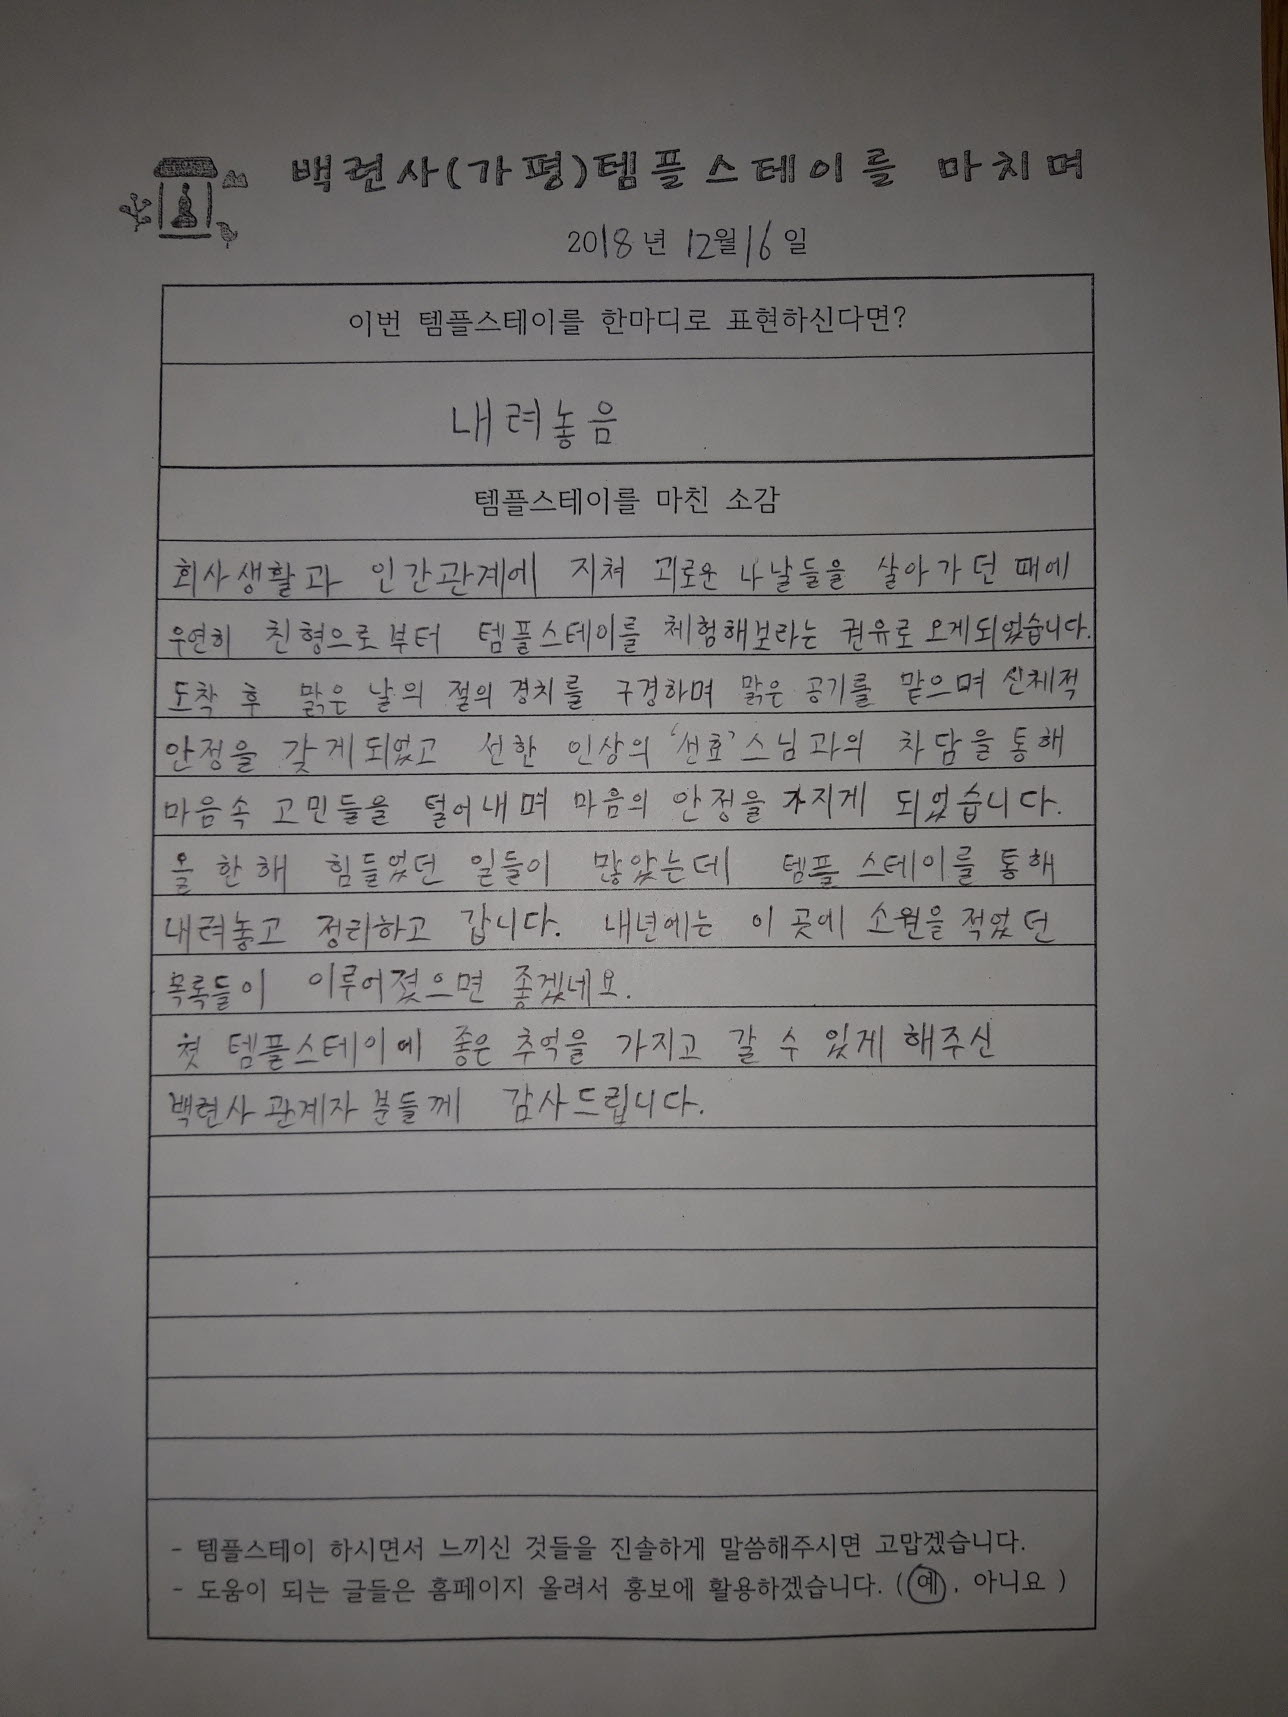 백련사(가평)템플스테이를 마치며
2018년 12월 16일
이번 템플스테이를 한마디로 표현하신다면?
내려놓음
템플스테이를 마친 소감
회사생활과 인간관계에 지쳐 괴로운 나날들을 살아가던 때에
우연히 친형으로부터 템플스테이를 체험해보라는 권유로 오게되었습니다.
도착 후 맑은 날의 절의 경치를 구경하며 맑은 공기를 맡으며 신체적
안정을 갖게되었고 선한 인상의 '선효'스님과의 차담을 통해
마음속 고민들을 털어내며 마음의 안정을 가지게 되었습니다.
올 한해 힘들었던 일들이 많았는데 템플 스테이를 통해
내려놓고 정리하고 갑니다. 내년에는 이 곳에 소원을 적었던
목록들이 이루어졌으면 좋겠네요.
첫 템플스테이에 좋은 추억을 가지고 갈 수 있게 해주신
백련사 관계자 분들께 감사드립니다.
- 템플스테이 하시면서 느끼신 것들을 진솔하게 말씀해주시면 고맙겠습니다.
- 도움이 되는 글들은 홈페이지 올려서 홍보에 활용하겠습니다. (예, 아니요 )